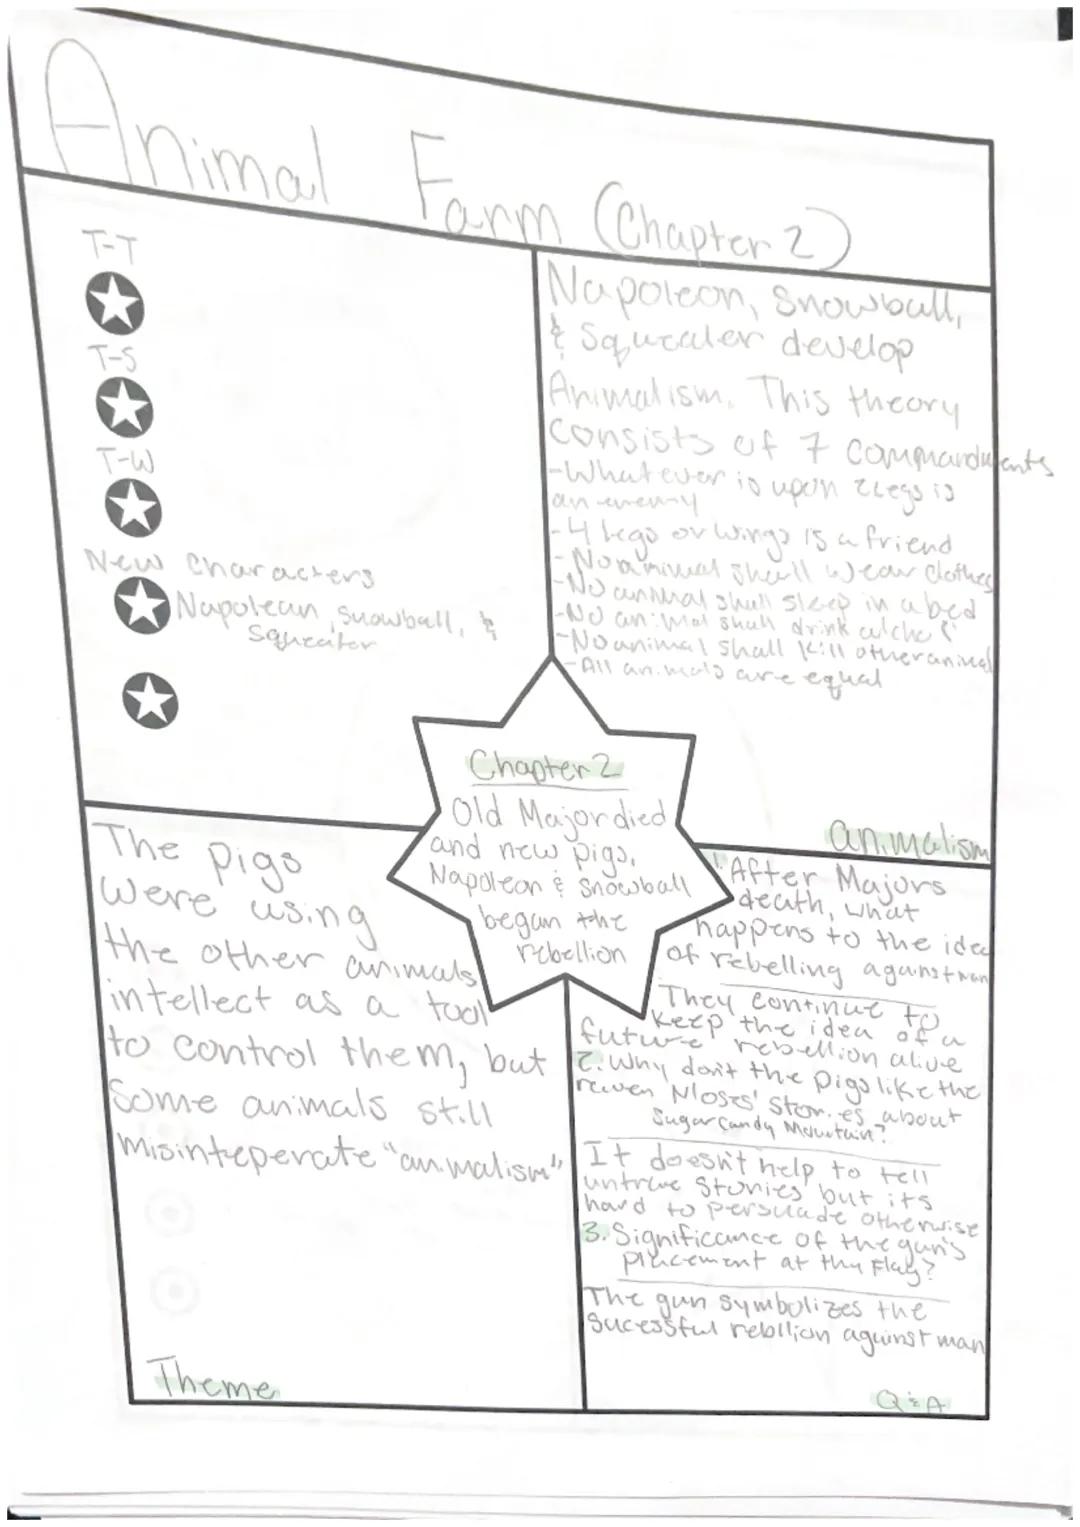 Animal Farm (Chapter 2)
T-T
T-S
T-W
New characters
Napolean, snowball, &
Squealer
Napoleon, Snowball,
& Squealer develop
Animalism. This theory
consists of 7 commandments
-Whatever is upon 2 legs is
an enemy
-4 legs or wings is a friend
-No animal shall wear clothes
-No animal shall sleep in a bed
-No animal shall drink
-No animal shall kill other animal
-All animals are equal
animalism
Chapter 2
Old Major died
and new pigs,
Napoleon & Snowball
began the
rebellion
The pigs
were using
the other animals
intellect as a tool
to control them, but
Some animals still
misinteperate "animalism"
Theme
1. After Majors
death, what
happens to the idea
of rebelling against man
They continue to
keep the idea of a
future rebellion alive
2. Why don't the pigs like the
raven Moses' stories about
Sugarcandy Mountain?
It doesn't help to tell
untrue stories but its
hard to persuade otherwise
3. Significance of the gun's
placement at the Flag?
The gun symbolizes the
sucessful rebllion against man
Q & A